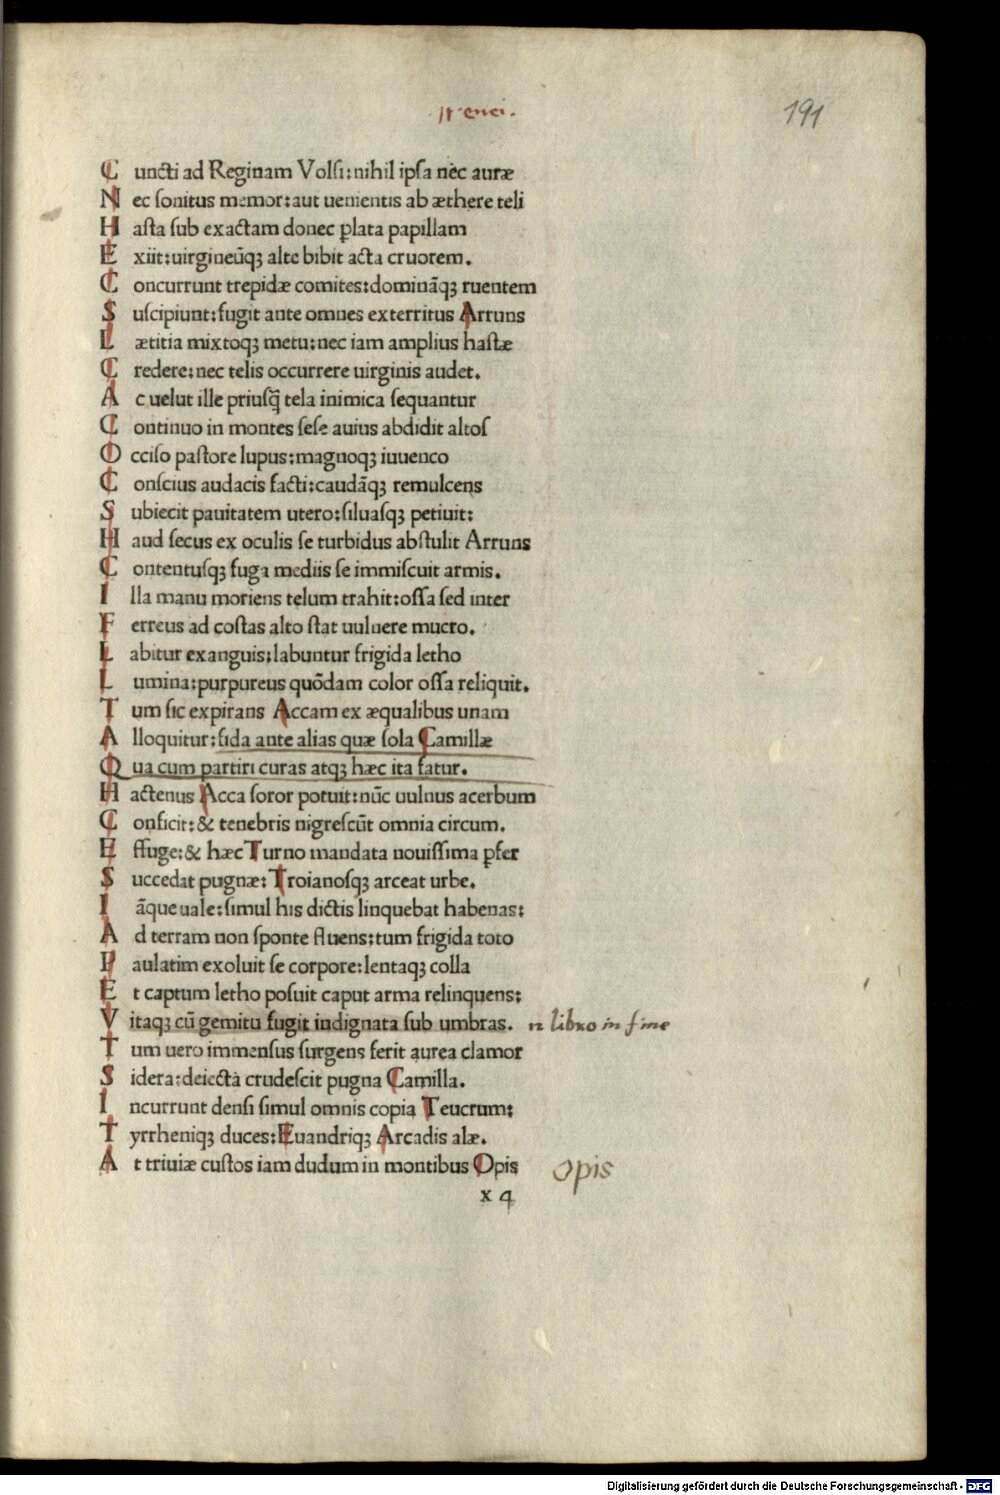 191
Cuncti ad Reginam Volsi:nihil ipsa nec auræ
Nec sonitus memor:aut uenientis ab æthere teli
Hasta sub exactam donec ꝑlata papillam
Exiit:uirgineũqꝫ alte bibit acta cruorem.
Concurrunt trepidæ comites:dominãqꝫ ruentem
Suscipiunt:fugit ante omnes exterritus Arruns
Lætitia mixtoqꝫ metu:nec iam amplius hastæ
Credere:nec telis occurrere uirginis audet.
Ac uelut ille priusq̃ tela inimica sequantur
Continuo in montes sese auius abdidit altos
Occiso pastore lupus:magnoqꝫ iuuenco
Conscius audacis facti:caudãqꝫ remulcens
Subiecit pauitatem utero:siluasqꝫ petiuit:
Haud secus ex oculis se turbidus abstulit Arruns
Contentusqꝫ fuga mediis se immiscuit armis.
Illa manu moriens telum trahit:ossa sed inter
Ferreus ad costas alto stat uulnere mucro.
Labitur exanguis:labuntur frigida letho
Lumina:purpureus quõdam color ossa reliquit.
Tum sic expirans Accam ex æqualibus unam
Alloquitur:fida ante alias quæ sola Camillæ
Qua cum partiri curas atqꝫ hæc ita fatur.
Hactenus Acca soror potuit:nũc uulnus acerbum
Conficit:& tenebris nigrescũt omnia circum.
Effuge:& hæc Turno mandata nouissima ꝑfer
Succedat pugnæ:Troianosqꝫ arceat urbe.
Iãque uale:simul his dictis linquebat habenas:
Ad terram non sponte fluens:tum frigida toto
Paulatim exoluit se corpore:lentaqꝫ colla
Et captum letho posuit caput arma relinquens:
Vitaqꝫ cũ gemitu fugit indignata sub umbras. 12 libro in fine
Tum uero immensus surgens ferit aurea clamor
Sidera:deiecta crudescit pugna Camilla.
Incurrunt densi simul omnis copia Teucrum:
Tyrrheniqꝫ duces:Euandriqꝫ Arcadis alæ.
At triuiæ custos iam dudum in montibus Opis Opis
x 4
Digitalisierung gefördert durch die Deutsche Forschungsgemeinschaft - DFG